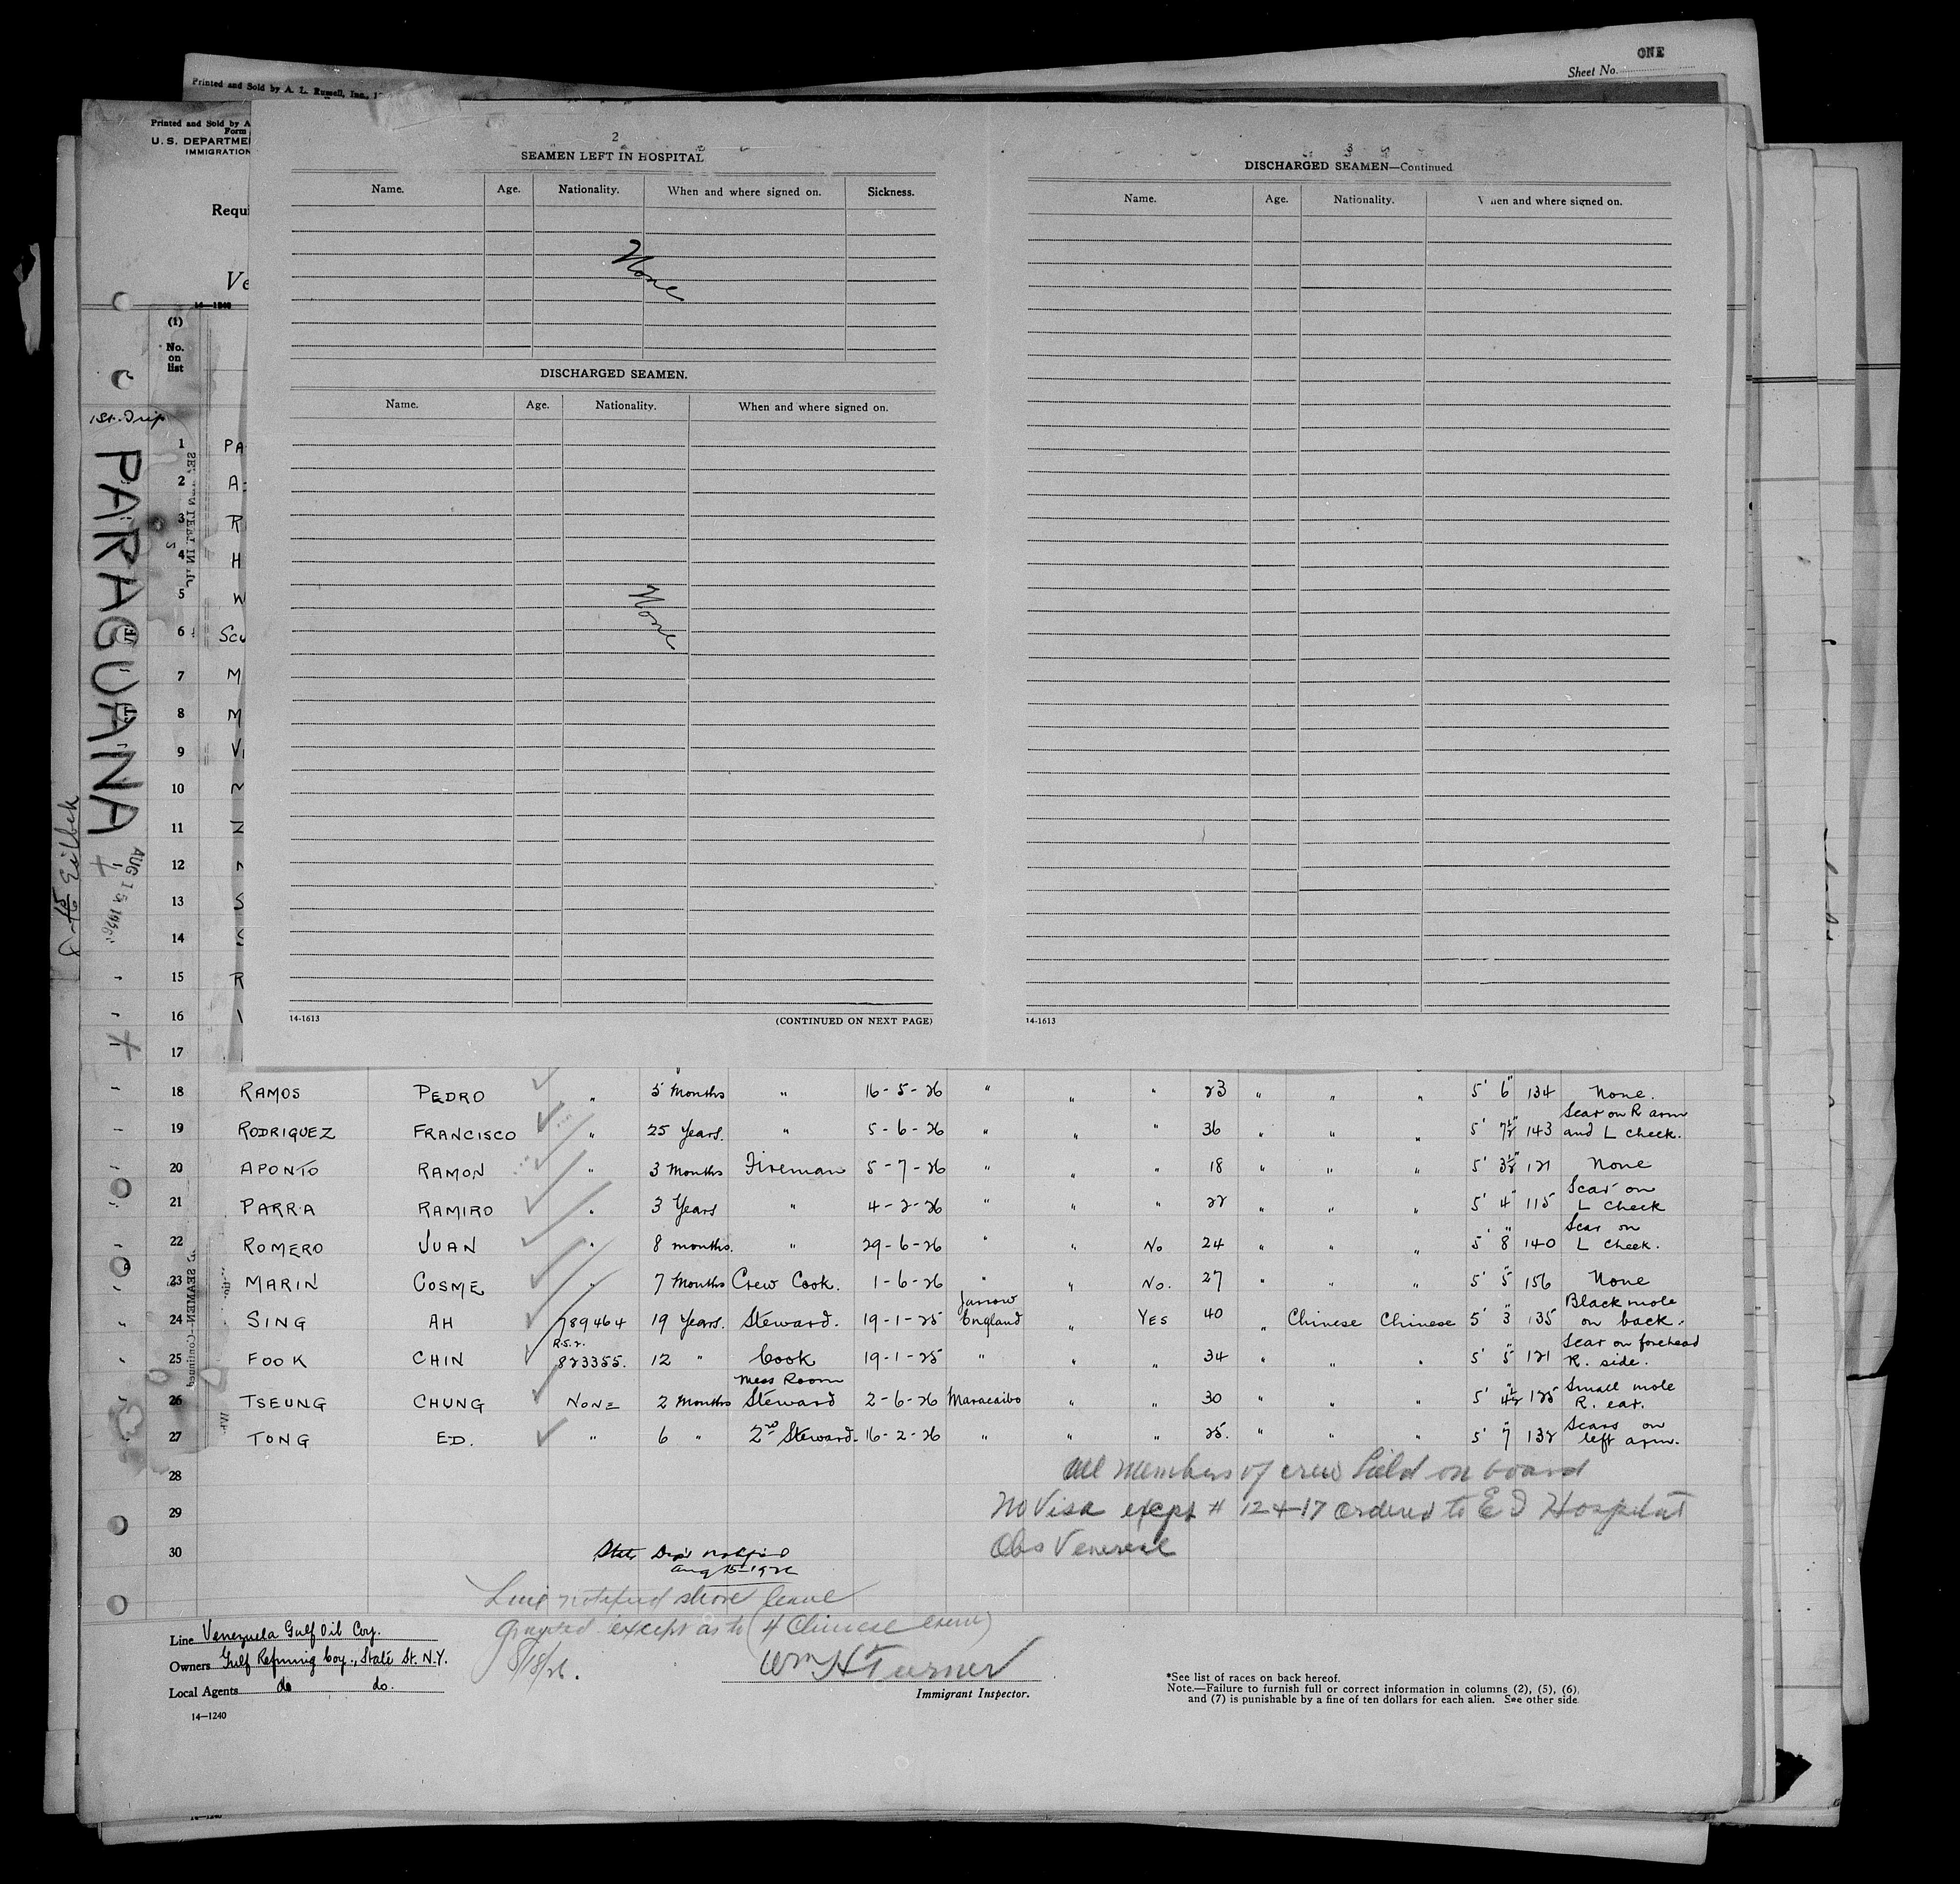 ONE
Sheet No.
Printed and Sold by A. L. Russell, Inc.,
Printed and Sold by A
Form
U. S. DEPARTME
IMMIGRATION
Requi
Ve
14—1240
(1)
No.
on
list
1st. Trip
PARAGUANA
AUG 15 1926
2
SEAMEN LEFT IN HOSPITAL
Name. Age. Nationality. When and where signed on. Sickness.
None
DISCHARGED SEAMEN.
Name. Age. Nationality. When and where signed on.
None
14-1613 (CONTINUED ON NEXT PAGE)
3
DISCHARGED SEAMEN—Continued
Name. Age. Nationality. When and where signed on.
14-1613
1 PA
2 A
3 R
4 H
5 W
6 Scu
7 M
8 M
9 V
10
11 Z
12
13 S
14
15 R
16
17
18 RAMOS PEDRO " 5 Months " 16-5-26 " " " 23 " " " 5' 6" 134 None.
19 RODRIGUEZ FRANCISCO " 25 Years. " 5-6-26 " " " 36 " " " 5' 7½" 143 Scar on R arm and L cheek.
20 APONTO RAMON " 3 Months Fireman 5-7-26 " " " 18 " " " 5' 3½" 121 None
21 PARRA RAMIRO " 3 Years " 4-2-26 " " " 22 " " " 5' 4" 115 Scar on L cheek
22 ROMERO JUAN " 8 months. " 29-6-26 " " No 24 " " " 5' 8" 140 Scar on L cheek.
23 MARIN COSME " 7 Months Crew Cook. 1-6-26 " " No. 27 " " " 5' 5" 156 None
24 SING AH 789464 19 Years. Steward. 19-1-25 Jarrow England " YES 40 " Chinese Chinese 5' 3" 135 Black mole on back.
25 FOOK CHIN R.S.2. 823355. 12 " Cook 19-1-25 " " " 34 " " " 5' 5" 121 Scar on forehead R. side.
26 TSEUNG CHUNG NONE 2 Months Mess Room Steward 2-6-26 Maracaibo " " 30 " " " 5' 4½" 125 Small mole R. ear.
27 TONG ED. " 6 " 2nd Steward. 16-2-26 " " " 25. " " " 5' 7" 132 Scars on left arm.
28
29
30
All members of crew held on board
No Visa except # 12+17 ordered to E I Hospital
Obs Venereal
State Dep't notified
Aug 15-1926
Line notified shore leave
granted except as to (4 Chinese crew)
8/18/26.
Wm H Turner
Immigrant Inspector.
Line Venezuela Gulf Oil Coy.
Owners Gulf Refining Coy., State St. N.Y.
Local Agents do do.
14—1240
*See list of races on back hereof.
Note.—Failure to furnish full or correct information in columns (2), (5), (6),
and (7) is punishable by a fine of ten dollars for each alien. See other side